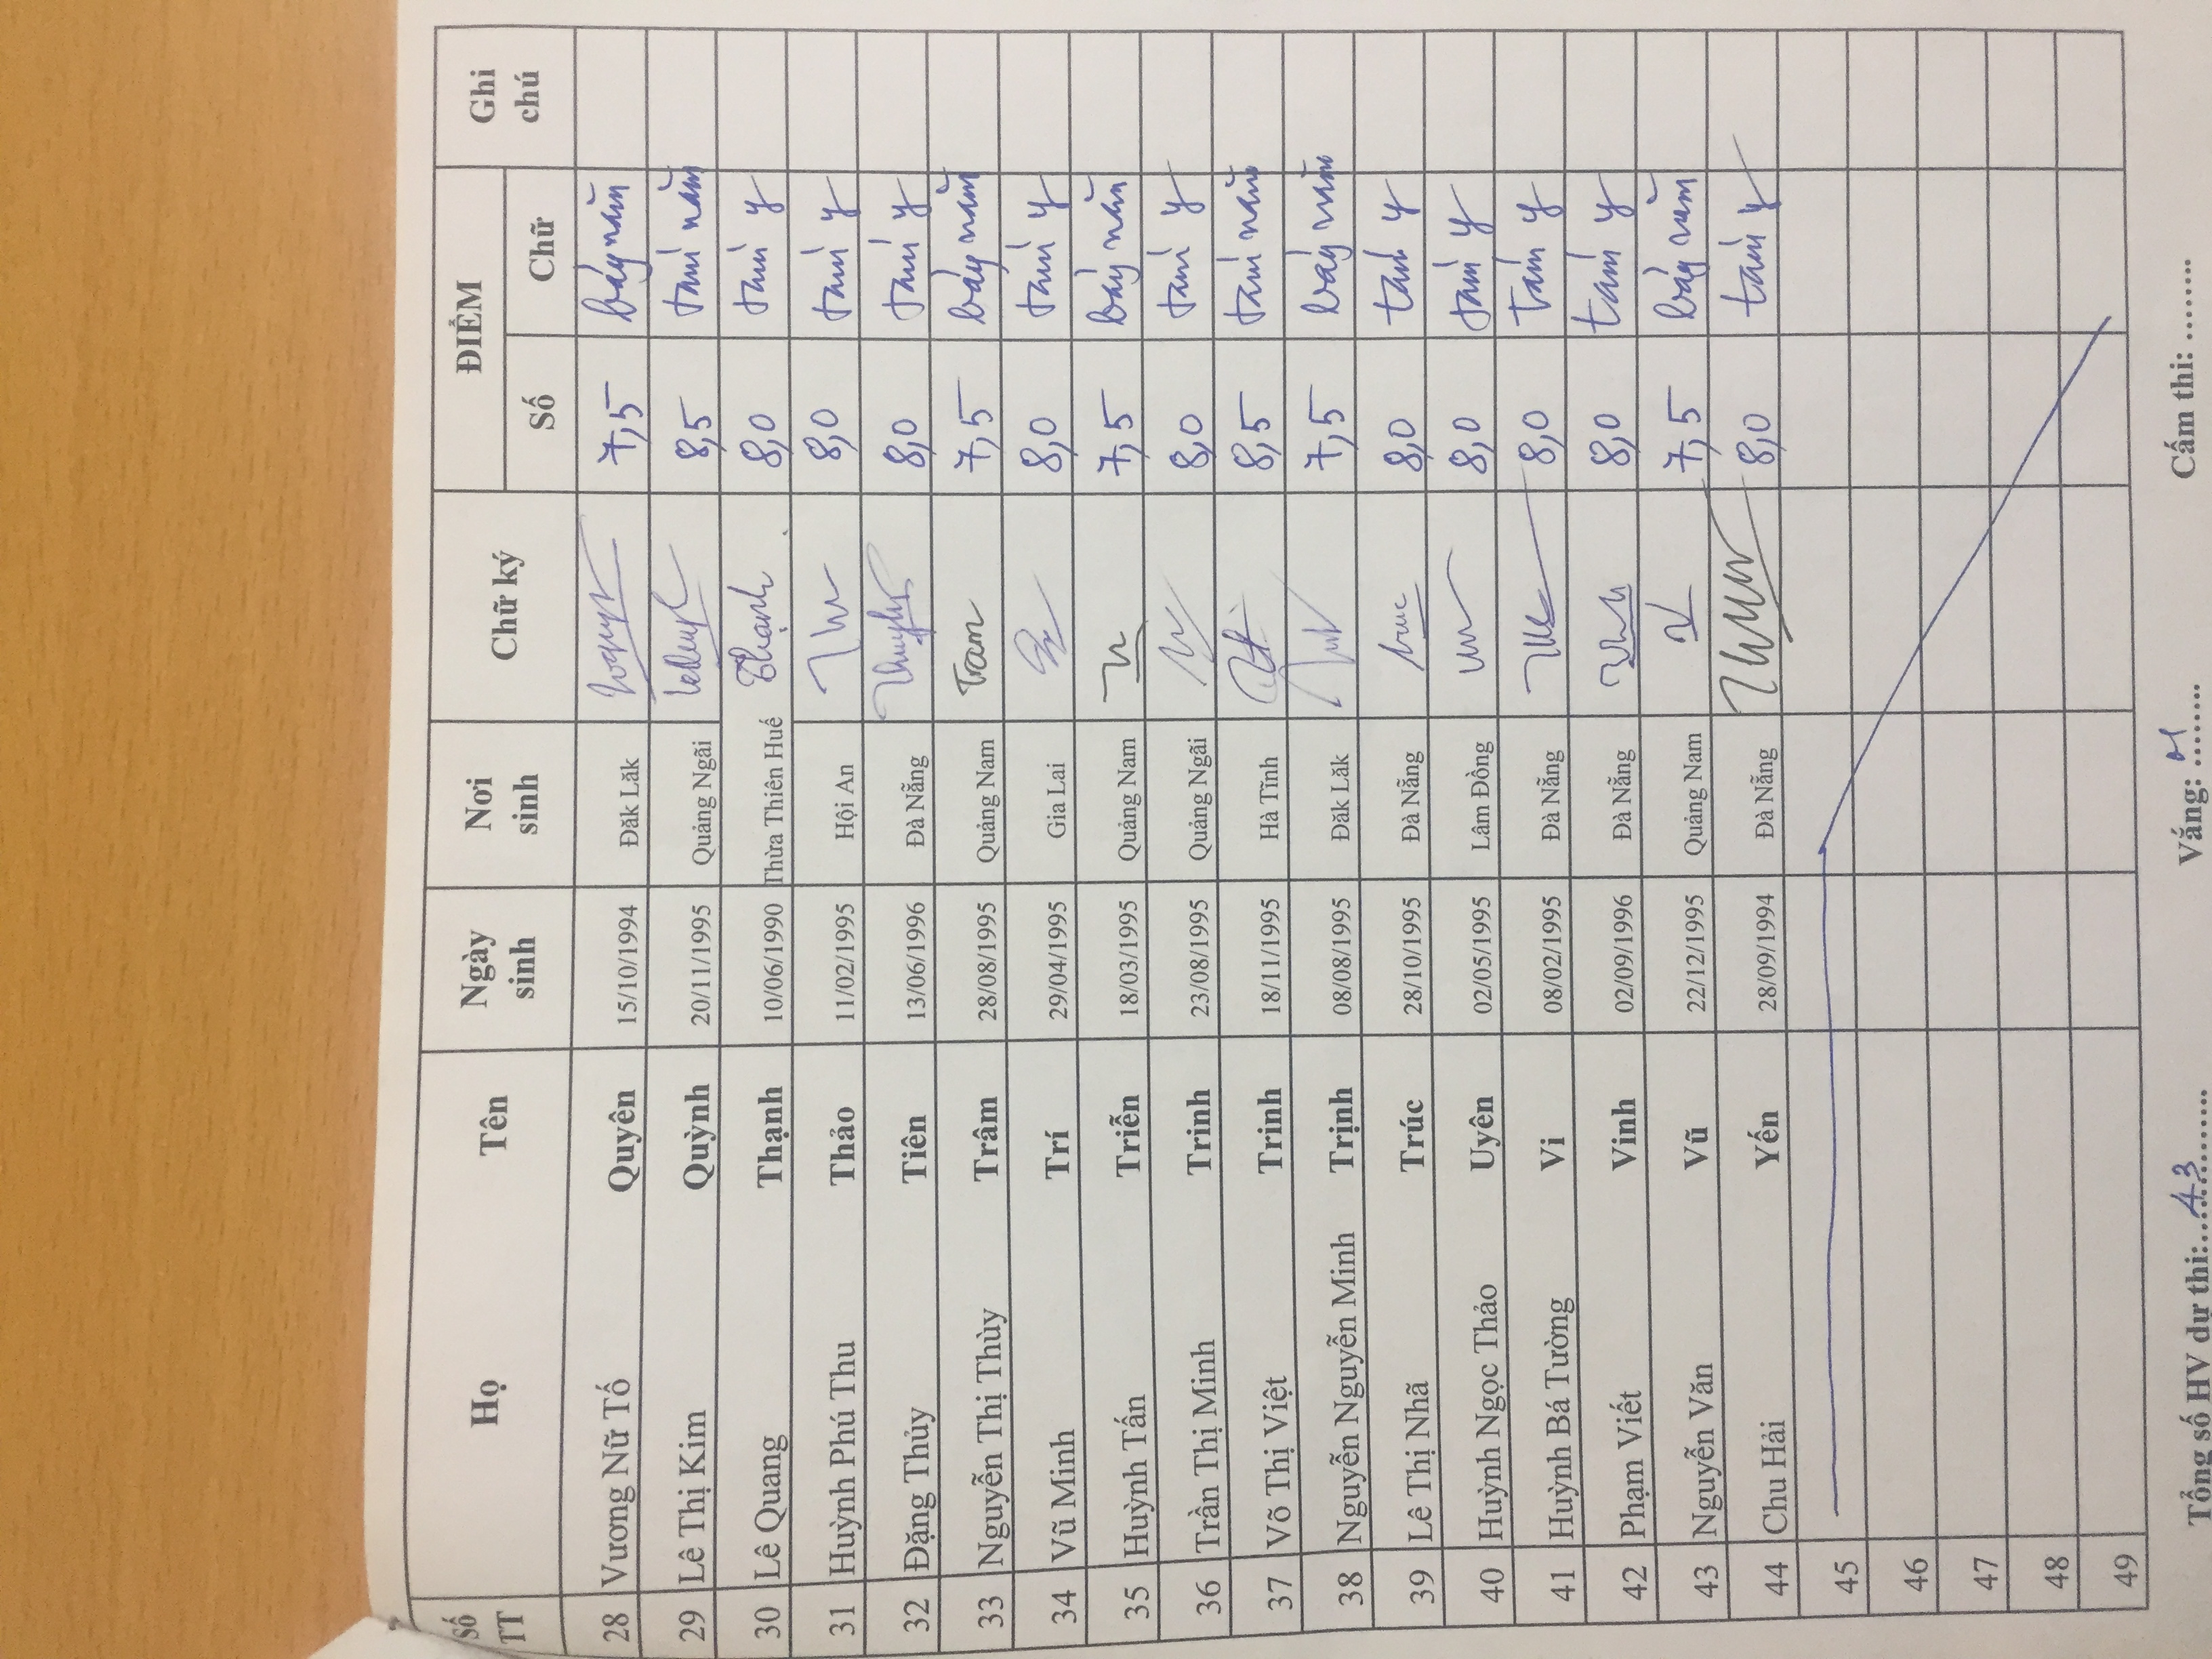 Số TT Họ Tên Ngày sinh Nơi sinh Chữ ký ĐIỂM Ghi chú
Số Chữ
28 Vương Nữ Tố Quyên 15/10/1994 Đăk Lăk 7,5 bảy năm
29 Lê Thị Kim Quỳnh 20/11/1995 Quảng Ngãi 8,5 tám năm
30 Lê Quang Thạnh 10/06/1990 Thừa Thiên Huế Thạnh 8,0 tám y
31 Huỳnh Phú Thu Thảo 11/02/1995 Hội An 8,0 tám y
32 Đặng Thủy Tiên 13/06/1996 Đà Nẵng 8,0 tám y
33 Nguyễn Thị Thùy Trâm 28/08/1995 Quảng Nam Tram 7,5 bảy năm
34 Vũ Minh Trí 29/04/1995 Gia Lai 8,0 tám y
35 Huỳnh Tấn Triễn 18/03/1995 Quảng Nam 7,5 bảy năm
36 Trần Thị Minh Trinh 23/08/1995 Quảng Ngãi 8,0 tám y
37 Võ Thị Việt Trinh 18/11/1995 Hà Tĩnh 8,5 tám năm
38 Nguyễn Nguyễn Minh Trịnh 08/08/1995 Đăk Lăk 7,5 bảy năm
39 Lê Thị Nhã Trúc 28/10/1995 Đà Nẵng 8,0 tám y
40 Huỳnh Ngọc Thảo Uyên 02/05/1995 Lâm Đồng 8,0 tám y
41 Huỳnh Bá Tường Vi 08/02/1995 Đà Nẵng 8,0 tám y
42 Phạm Viết Vinh 02/09/1996 Đà Nẵng 8,0 tám y
43 Nguyễn Văn Vũ 22/12/1995 Quảng Nam 7,5 bảy năm
44 Chu Hải Yến 28/09/1994 Đà Nẵng 8,0 tám y
45
46
47
48
49
Tổng số HV dự thi:...43........ Vắng: ....... Cấm thi: ........